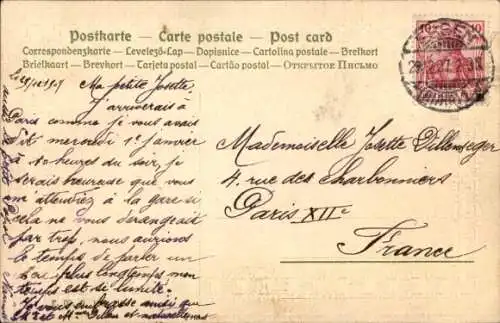 Postkarte – Carte postale – Post card
Correspondenzkarte – Levelező-Lap – Dopisnice – Cartolina postale – Brefkort
Briefkaart – Brevkort – Tarjeta postal – Cartão postal – Открытое Письмо
10
Ma petite Josette,
J'arriverais à
Paris comme je vous avais
dit mercredi 1er janvier
à 10 heures du soir, je
serais heureuse que vous
m'attendiez à la gare si
cela ne vous dérangeait
par trop, nous aurions
le temps de parler un
plus longtemps mon
temps est si limité.
Je vous embrasse ainsi que
et Mme Dillen et
Mademoiselle Josette Dillenseger
4, rue des Charbonniers
Paris XIIe
France